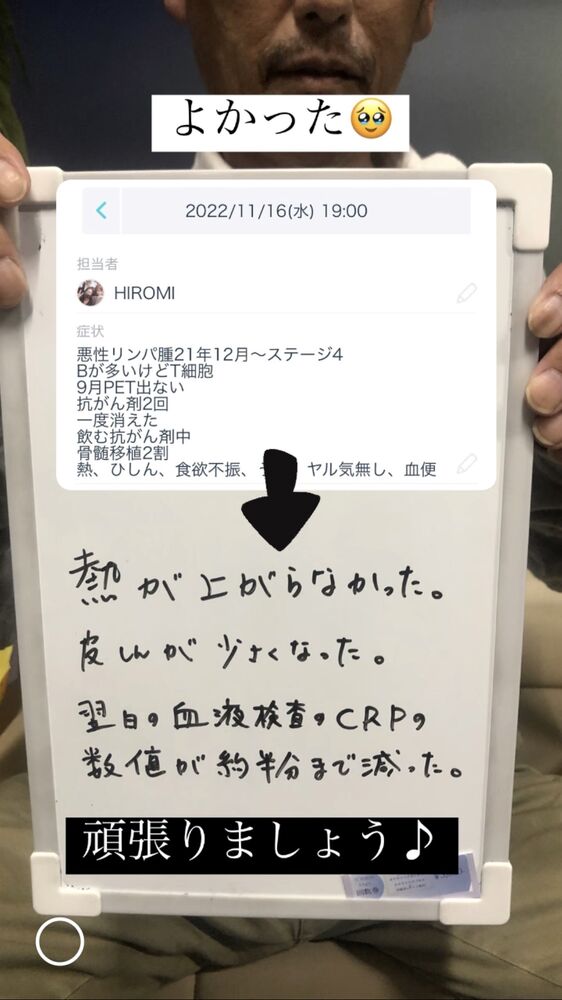 よかった🥹
2022/11/16(水) 19:00
担当者
HIROMI
症状
悪性リンパ腫21年12月〜ステージ4
Bが多いけどT細胞
9月PET出ない
抗がん剤2回
一度消えた
飲む抗がん剤中
骨髄移植2割
熱、ひしん、食欲不振、 ヤル気無し、血便
熱が上がらなかった。
皮しんが少なくなった。
翌日の血液検査のCRPの
数値が約半分まで減った。
頑張りましょう♪
回数券